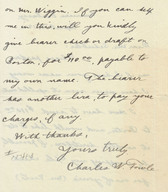 on Mr. Wiggin. If you can aid
me in this, will you kindly
give bearer check or draft on
Boston, for $110.00, payable to
my own name. The bearer
has another line, to pay your
charges, if any
With thanks,
Yours truly
Charles W.